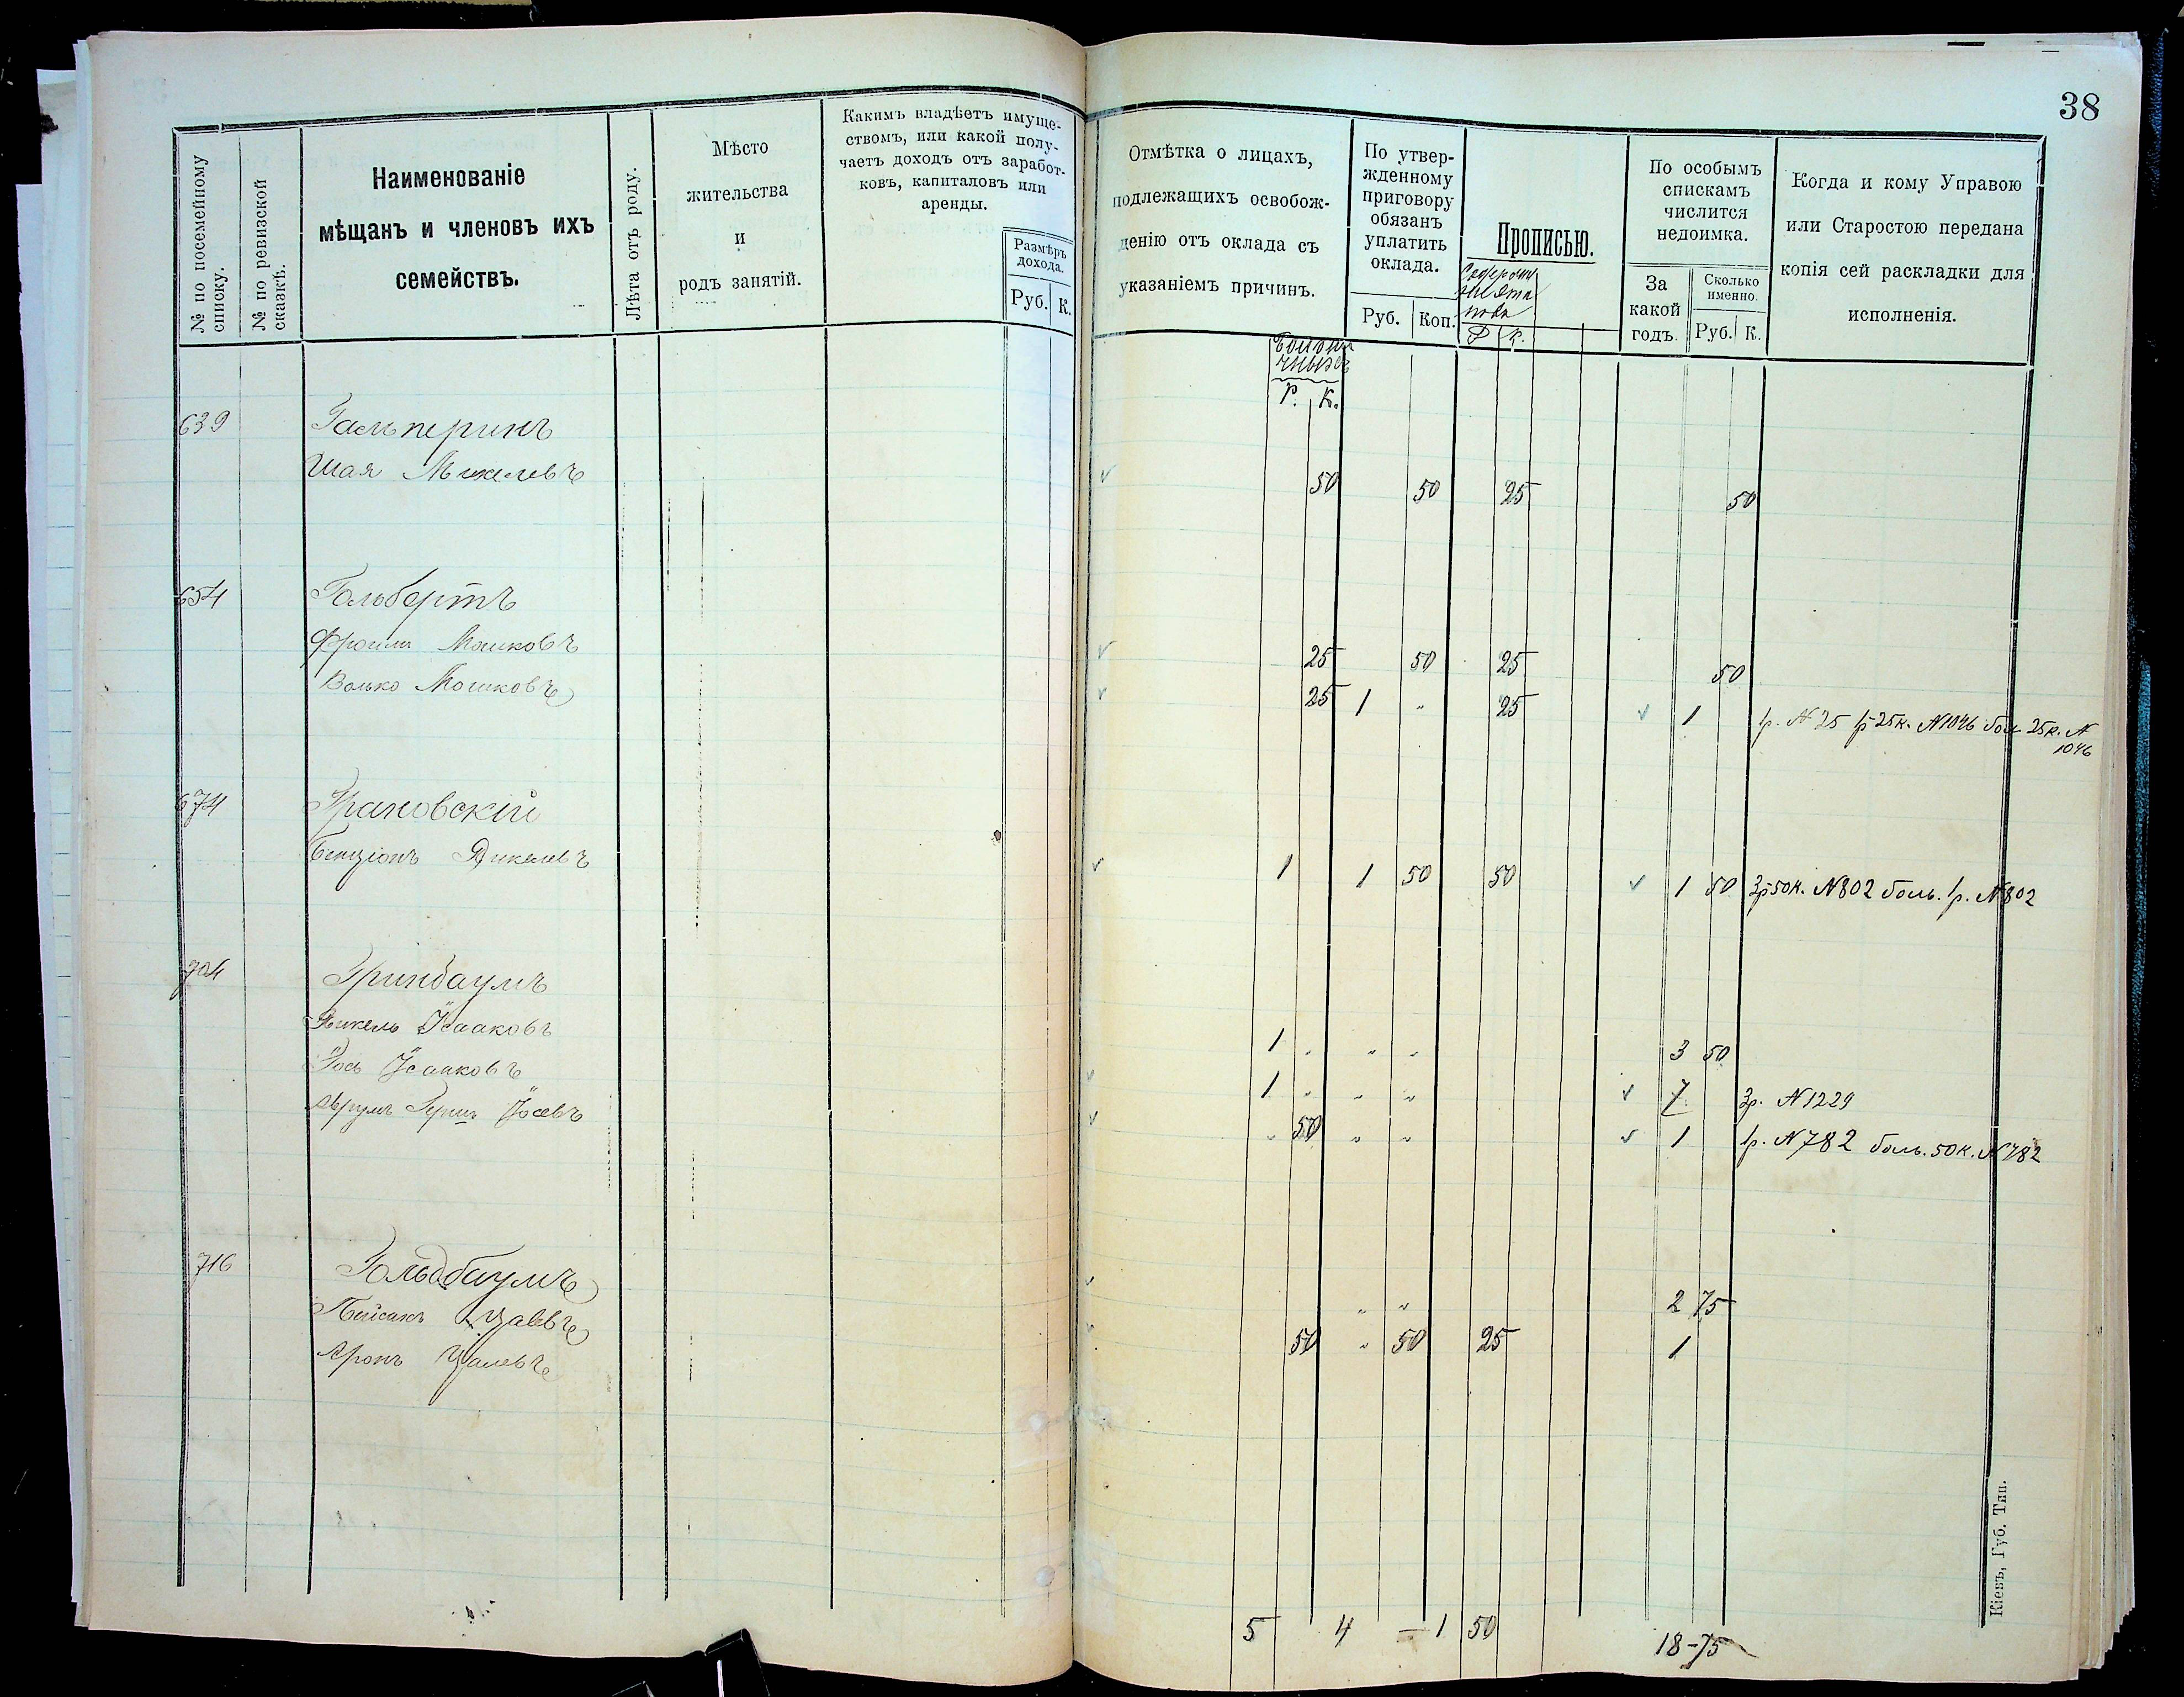 38
№ по посемейному списку.
№ по ревизской сказкѣ.
Наименованіе
мѣщанъ и членовъ ихъ
семействъ.
Лѣта отъ роду.
Мѣсто
жительства
и
родъ занятій.
Какимъ владѣетъ имуще-
ствомъ, или какой полу-
чаетъ доходъ отъ заработ-
ковъ, капиталовъ или
аренды.
Размѣръ
дохода.
Руб. К.
Отмѣтка о лицахъ,
подлежащихъ освобож-
денію отъ оклада съ
указаніемъ причинъ.
По утвер-
жденному
приговору
обязанъ
уплатить
оклада.
Руб. Коп.
Прописью.
Р К.
По особымъ
спискамъ
числится
недоимка.
За
какой
годъ.
Сколько
именно.
Руб. К.
Когда и кому Управою
или Старостою передана
копія сей раскладки для
исполненія.
Р. К.
639 Гальперинъ
Шая 50 50 25 50
654 Гольбертъ
Фроим Мошковъ 25 50 25 50
Волько Мошковъ 25 1 " 25 1 1р. N 25 1р 25к. N1046 бол 25к. N
1046
674 Грановскій
Бенціонъ Янкелевъ 1 1 50 50 1 50 3р50к. N802 боль. 1р. N802
704 Гринбаумъ
Янкель Исааковъ 1 " " " 3 50
Іось Исааковъ 1 " " " 7 3р. N1229
Аврум Герш Іосевъ " 50 " " 1 1р. N782 боль. 50к. N782
716 Гольдбаумъ
Пейсахъ " " 2 75
Аронъ 50 " 50 25 1
5 4 - 1 50 18-75
Кіевъ, Губ. Тип.